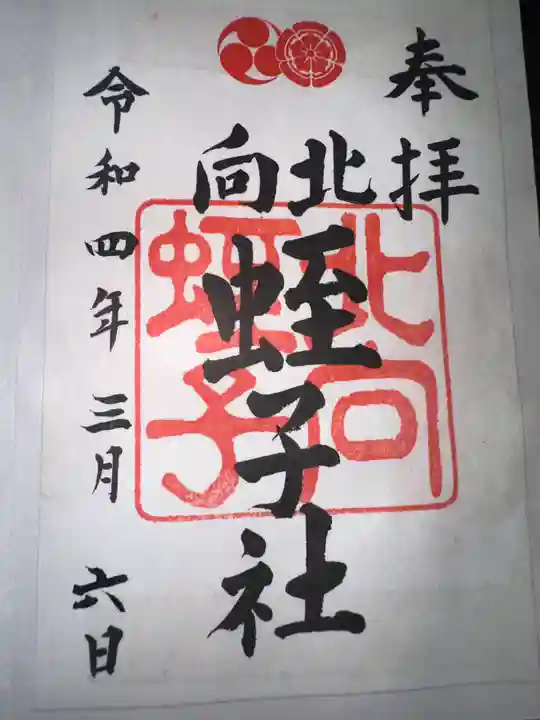 奉拝
北向
蛭子社
令和四年三月六日
北向
蛭子